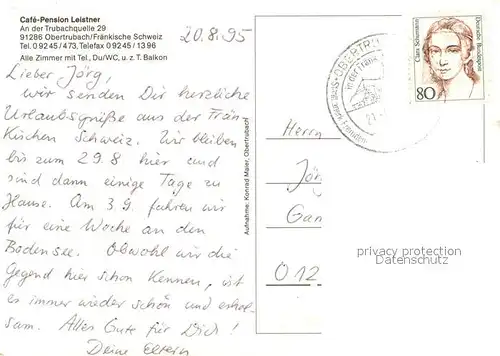 Café-Pension Leistner
An der Trubachquelle 29
91286 Obertrubach/Fränkische Schweiz
Tel. 0 92 45 / 473, Telefax 0 92 45 / 13 96
Alle Zimmer mit Tel., Du/WC, u. z. T. Balkon
20.8.95
Lieber Jörg,
wir senden Dir herzliche
Urlaubsgrüße aus der Frän-
kischen Schweiz. Wir bleiben
bis zum 29.8 hier und
sind dann einige Tage zu
Hause. Am 3.9. fahren wir
für eine Woche an den
Bodensee. Obwohl wir die
Gegend hier schon kennen, ist
es immer wieder schön und erhol-
sam. Alles Gute für Dich!
Deine Eltern
Aufnahme: Konrad Maier, Obertrubach
OBERTRU
in der Fränk
Clara Schumann
Deutsche Bundespost
80
Herrn
Jörg
Gan
O 12
privacy protection
Datenschutz